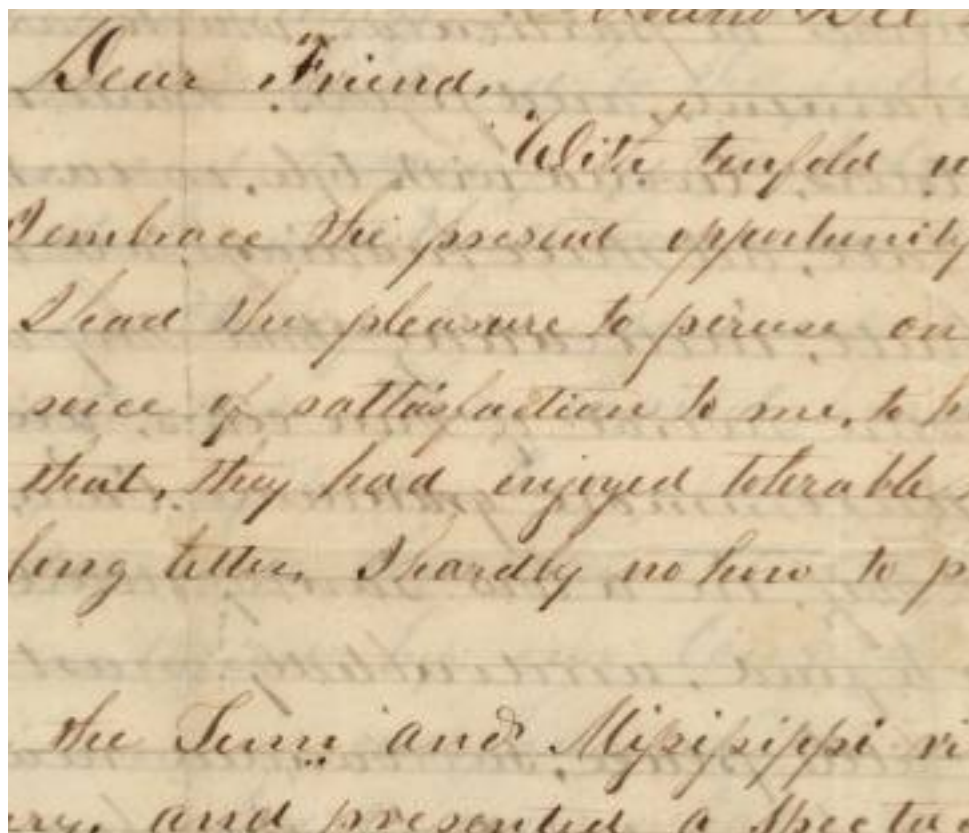 Dear Friend,
With tenfold
I embrace the present opportunity
I had the pleasure to peruse on
of sattisfaction to me, to
that, they had enjoyed tolerable
long letter, I hardly no how to p
the Tenn and Missisippi ri
and presented a Specta